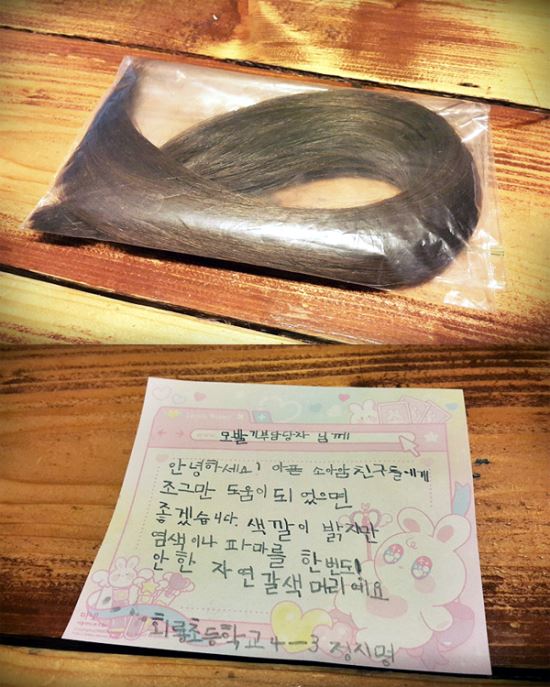 모발기부담당자 님께
안녕하세요! 아픈 소아암친구들에게
조그만 도움이 되었으면
좋겠습니다. 색깔이 밝지만
염색이나 파마를 한번도!
안한 자연갈색머리예요
초등학교 4-3